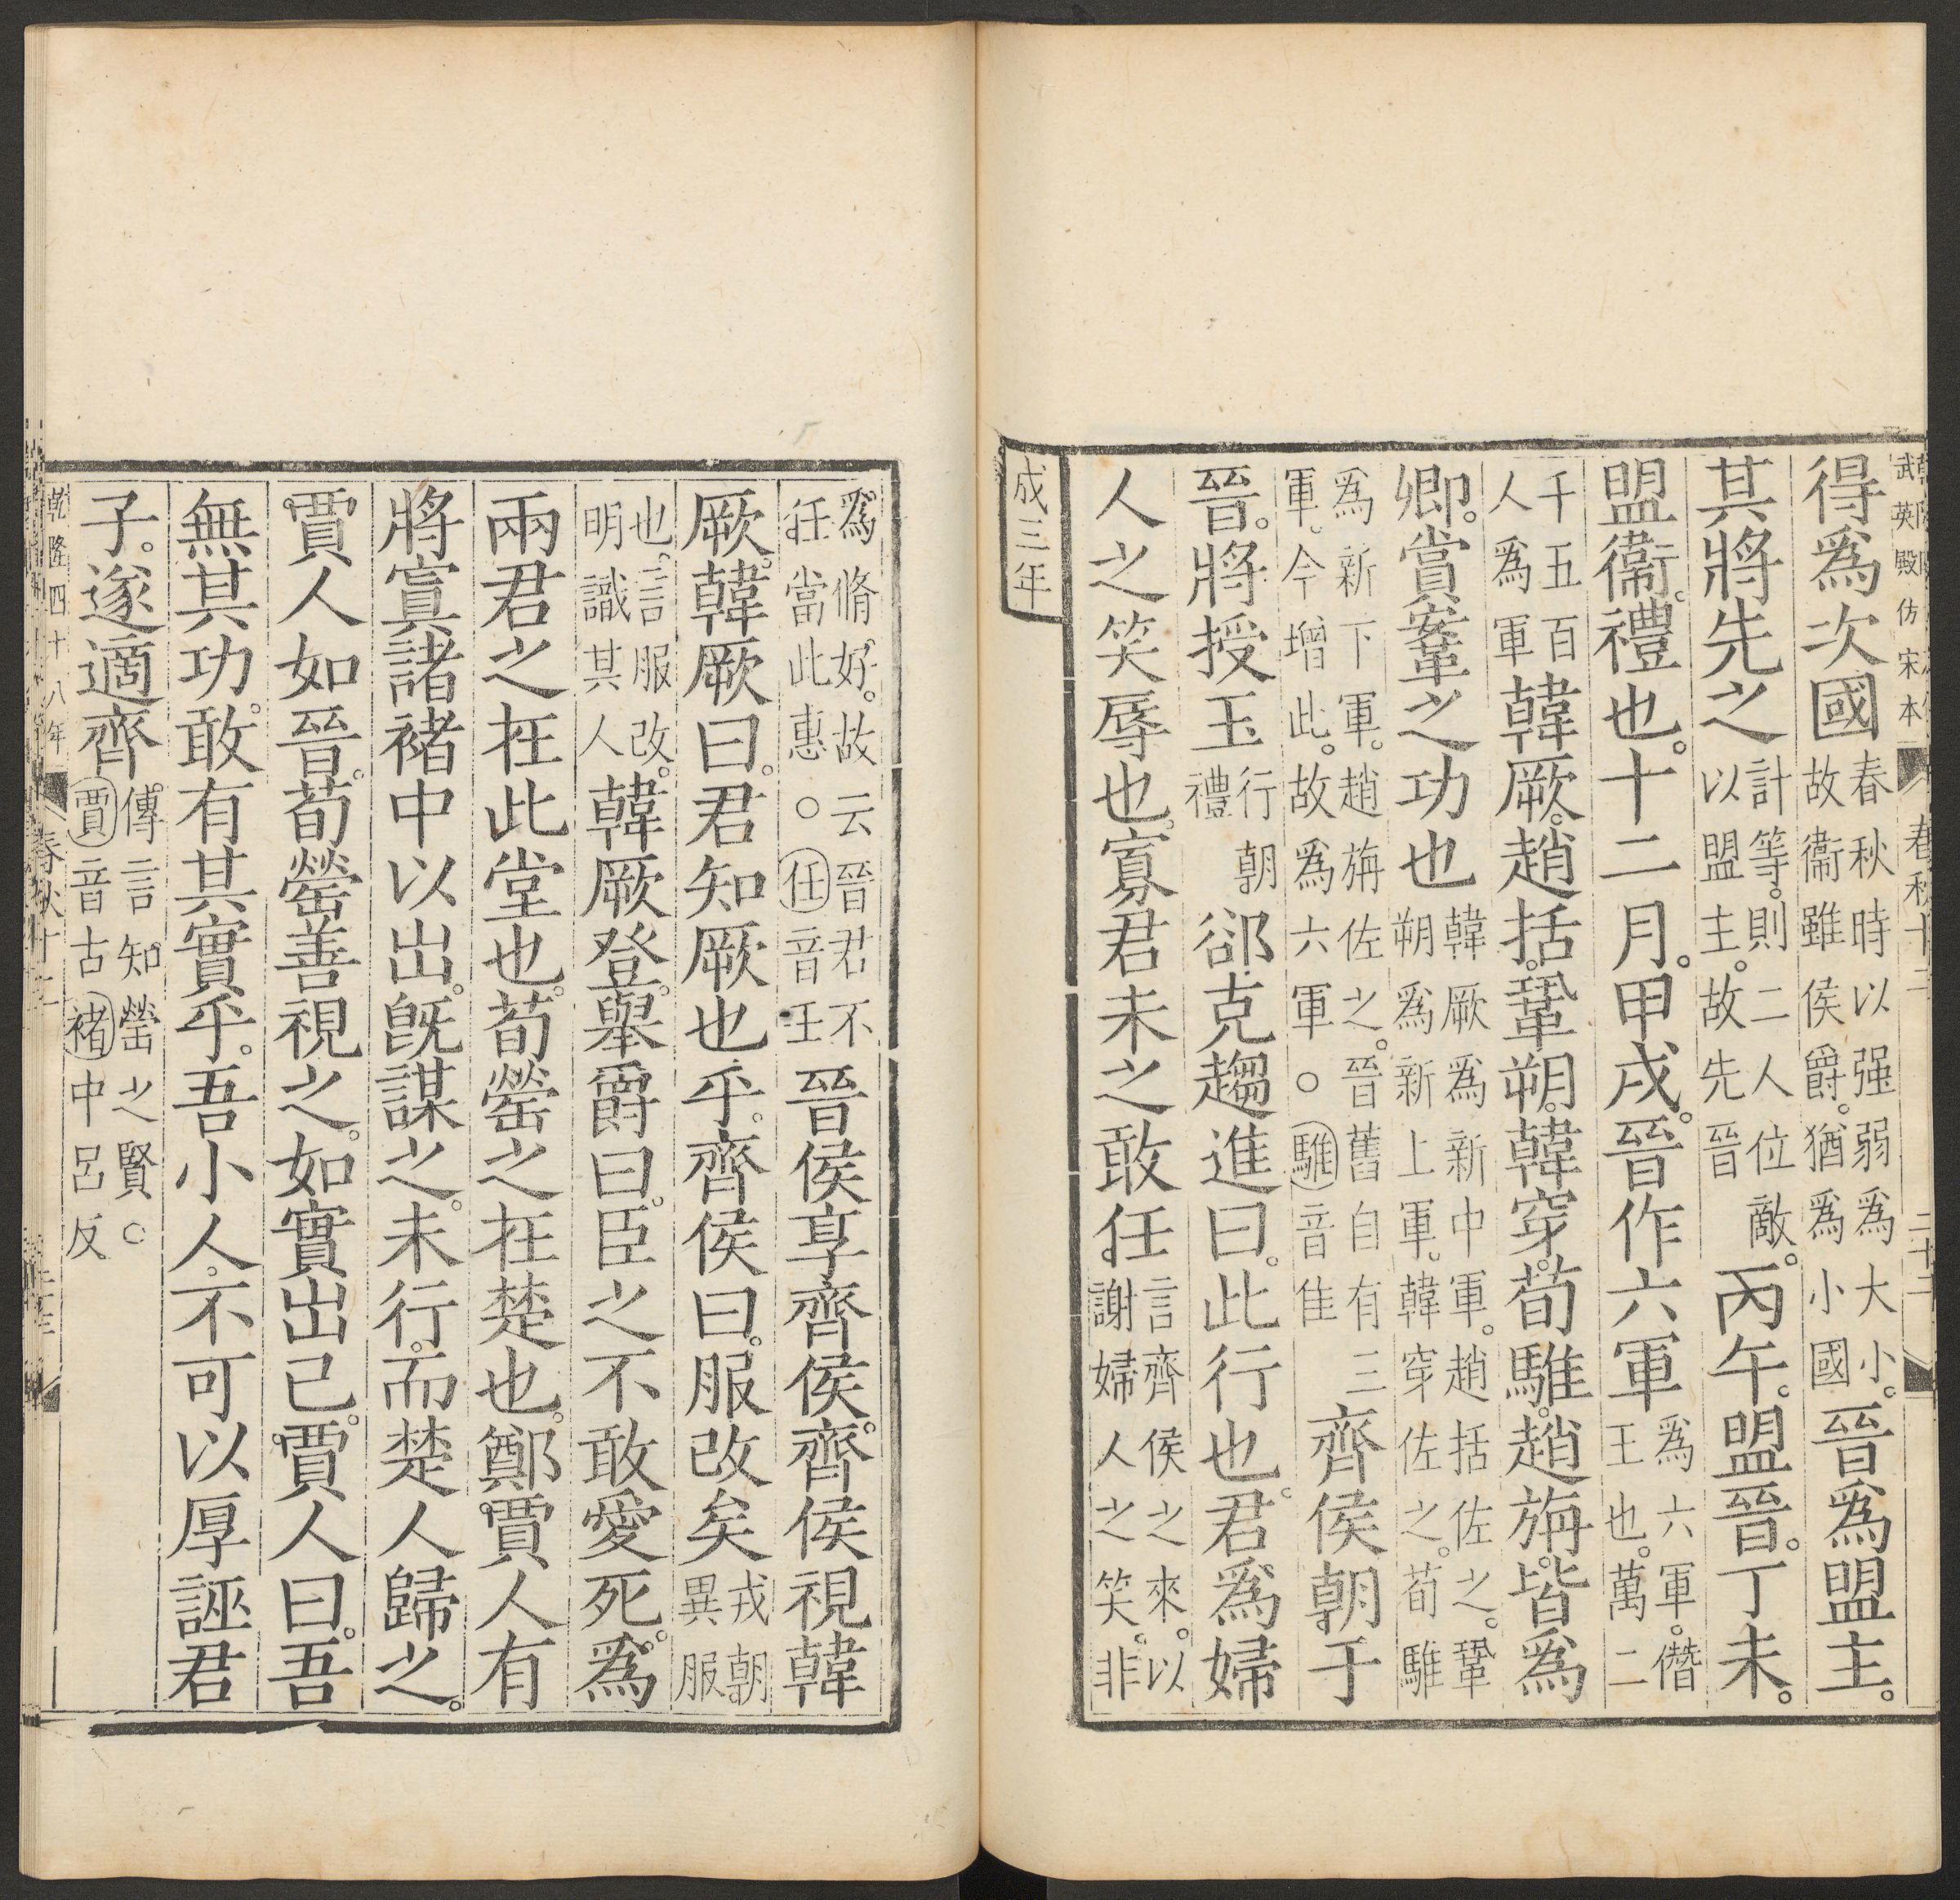 武英殿仿宋本 春秋十二 二十二
得爲次國春秋時以强弱爲大小。故衞雖侯爵。猶爲小國晉爲盟主。
其將先之計等。則二人位敵。以盟主。故先晉丙午。盟晉。丁未。
盟衞。禮也。十二月。甲戌。晉作六軍爲六軍。僭王也。萬二
千五百人爲軍韓厥。趙括。鞏朔。韓穿。荀騅。趙旃。皆爲
卿。賞鞌之功也韓厥爲新中軍。趙括佐之。鞏朔爲新上軍。韓穿佐之。荀騅
爲新下軍。趙旃佐之。晉舊自有三軍。今增此。故爲六軍。○騅音隹齊侯朝于
晉。將授玉行朝禮郤克趨進曰。此行也。君爲婦
人之笑辱也。寡君未之敢任。言齊侯之來。以謝婦人之笑。非
成三年
爲脩好。故云晉君不任當此惠○任音壬晉侯享齊侯。齊侯視韓
厥。韓厥曰。君知厥也乎。齊侯曰。服改矣戎朝異服
也。言服改。明識其人韓厥登。舉爵曰。臣之不敢愛死。爲
兩君之在此堂也。荀罃之在楚也。鄭賈人有
將寘諸褚中以出。旣謀之。未行。而楚人歸之。
賈人如晉。荀罃善視之。如實出己。賈人曰。吾
無其功。敢有其實乎。吾小人。不可以厚誣君
子。遂適齊。傳言知罃之賢○賈音古褚中呂反
乾隆四十八年 春秋十二